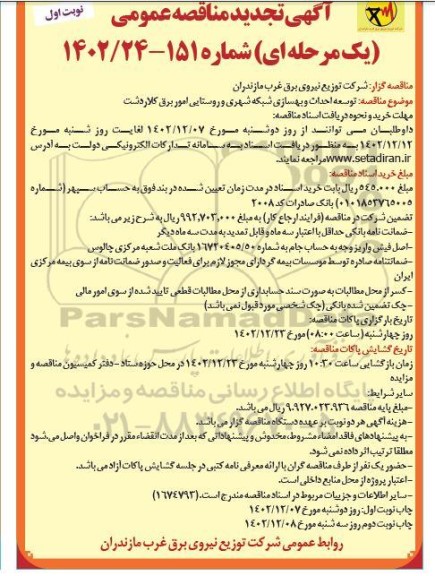 نوبت اول
آگهی تجدید مناقصه عمومی
(یک مرحله ای) شماره ۱۵۱-۱۴۰۲/۲۴
مناقصه گزار: شرکت توزیع نیروی برق غرب مازندران
موضوع مناقصه: توسعه احداث و بهسازی شبکه شهری و روستایی امور برق کلاردشت
مهلت خرید و نحوه دریافت اسناد مناقصه:
داوطلبان می توانند از روز دوشنبه مورخ ۱۴۰۲/۱۲/۰۷ لغایت روز شنبه مورخ
۱۴۰۲/۱۲/۱۲ به منظور دریافت اسناد به سامانه تدارکات الکترونیکی دولت به آدرس
www.setadiran.ir مراجعه نمایند.
مبلغ خرید اسناد مناقصه:
مبلغ ۵۴۵،۰۰۰ ریال بابت خرید اسناد در مدت زمان تعیین شده در بند فوق به حساب سپهر (شماره
۰۱۰۱۸۵۳۷۶۵۰۰۵) بانک صادرات کد ۲۰۰۸
تضمین شرکت در مناقصه (فرایند ارجاع کار) به مبلغ ۹۹۲،۷۰۲،۰۰۰ ریال به شرح زیر می باشد:
-ضمانت نامه بانکی حداقل با اعتبار سه ماه و قابل تمدید به مدت سه ماه دیگر
-اصل فیش واریز وجه به حساب جام به شماره ۱۶۷۲۰۴۰۵/۵۰ بانک ملت شعبه مرکزی چالوس
-ضمانتنامه صادره توسط موسسات بیمه گر دارای مجوز لازم برای فعالیت و صدور ضمانت نامه از سوی بیمه مرکزی
ایران
-کسر از محل مطالبات به صورت سند حسابداری از محل مطالبات قطعی تایید شده از سوی امور مالی
-چک تضمین شده بانکی (چک شخصی مورد قبول نمی باشد)
تاریخ بارگزاری پاکات مناقصه:
روز چهارشنبه (ساعت ۰۸:۰۰) مورخ ۱۴۰۲/۱۲/۲۳
تاریخ گشایش پاکات مناقصه:
زمان بازگشایی ساعت ۱۰:۳۰ روز چهارشنبه مورخ ۱۴۰۲/۱۲/۲۳ در محل حوزه ستاد - دفتر کمیسیون مناقصه و
مزایده
سایر شرایط:
-مبلغ پایه مناقصه ۹،۹۲۷،۰۲۳،۹۳۶ ریال می باشد.
-هزینه آگهی هر دو نوبت بر عهده دستگاه مناقصه گزار می باشد.
-به پیشنهادهای فاقد امضاء مشروط، مخدوش و پیشنهاداتی که بعد از مدت انقضاء مقرر در فراخوان واصل می شود
مطلقا ترتیب اثر داده نمی شود.
-حضور یک نفر از طرف مناقصه گران با ارائه معرفی نامه کتبی در جلسه گشایش پاکات آزاد می باشد.
-اعتبار پروژه از محل منابع داخلی است.
-سایر اطلاعات و جزییات مربوط در اسناد مناقصه مندرج است. (۱۶۷۴۷۹۳)
چاپ نوبت اول: روز دوشنبه مورخ ۱۴۰۲/۱۲/۰۷
چاپ نوبت دوم روز سه شنبه مورخ ۱۴۰۲/۱۲/۰۸
روابط عمومی شرکت توزیع نیروی برق غرب مازندران
ParsNamadData
پایگاه اطلاع رسانی مناقصه و مزایده